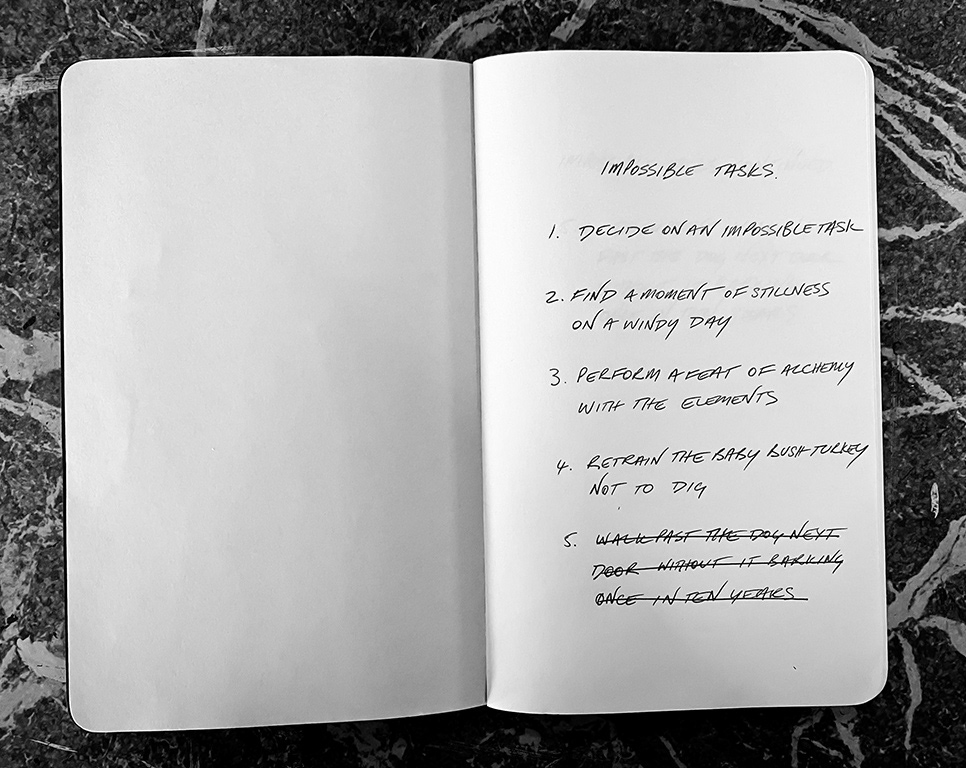 IMPOSSIBLE TASKS.
1. DECIDE ON AN IMPOSSIBLE TASK
2. FIND A MOMENT OF STILLNESS
ON A WINDY DAY
3. PERFORM A FEAT OF ALCHEMY
WITH THE ELEMENTS
4. RETRAIN THE BABY BUSH TURKEY
NOT TO DIG
5. WALK PAST THE DOG NEXT
DOOR WITHOUT IT BARKING
ONCE IN TEN YEARS